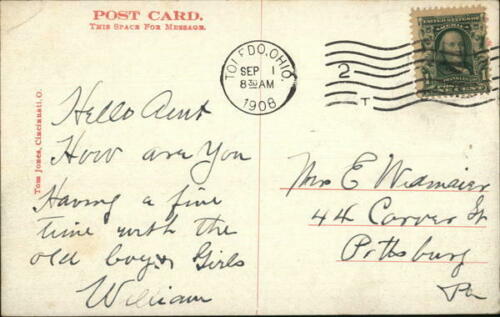 POST CARD.
THIS SPACE FOR MESSAGE.
TOLEDO, OHIO.
SEP 1
8 30 AM
1908
2
T
Tom Jones, Cincinnati, O.
Hello Aunt
How are You
Having a fine
time with the
old boys & Girls
William
Mrs E Widmaier
44 Carver St
Pittsburg
Pa